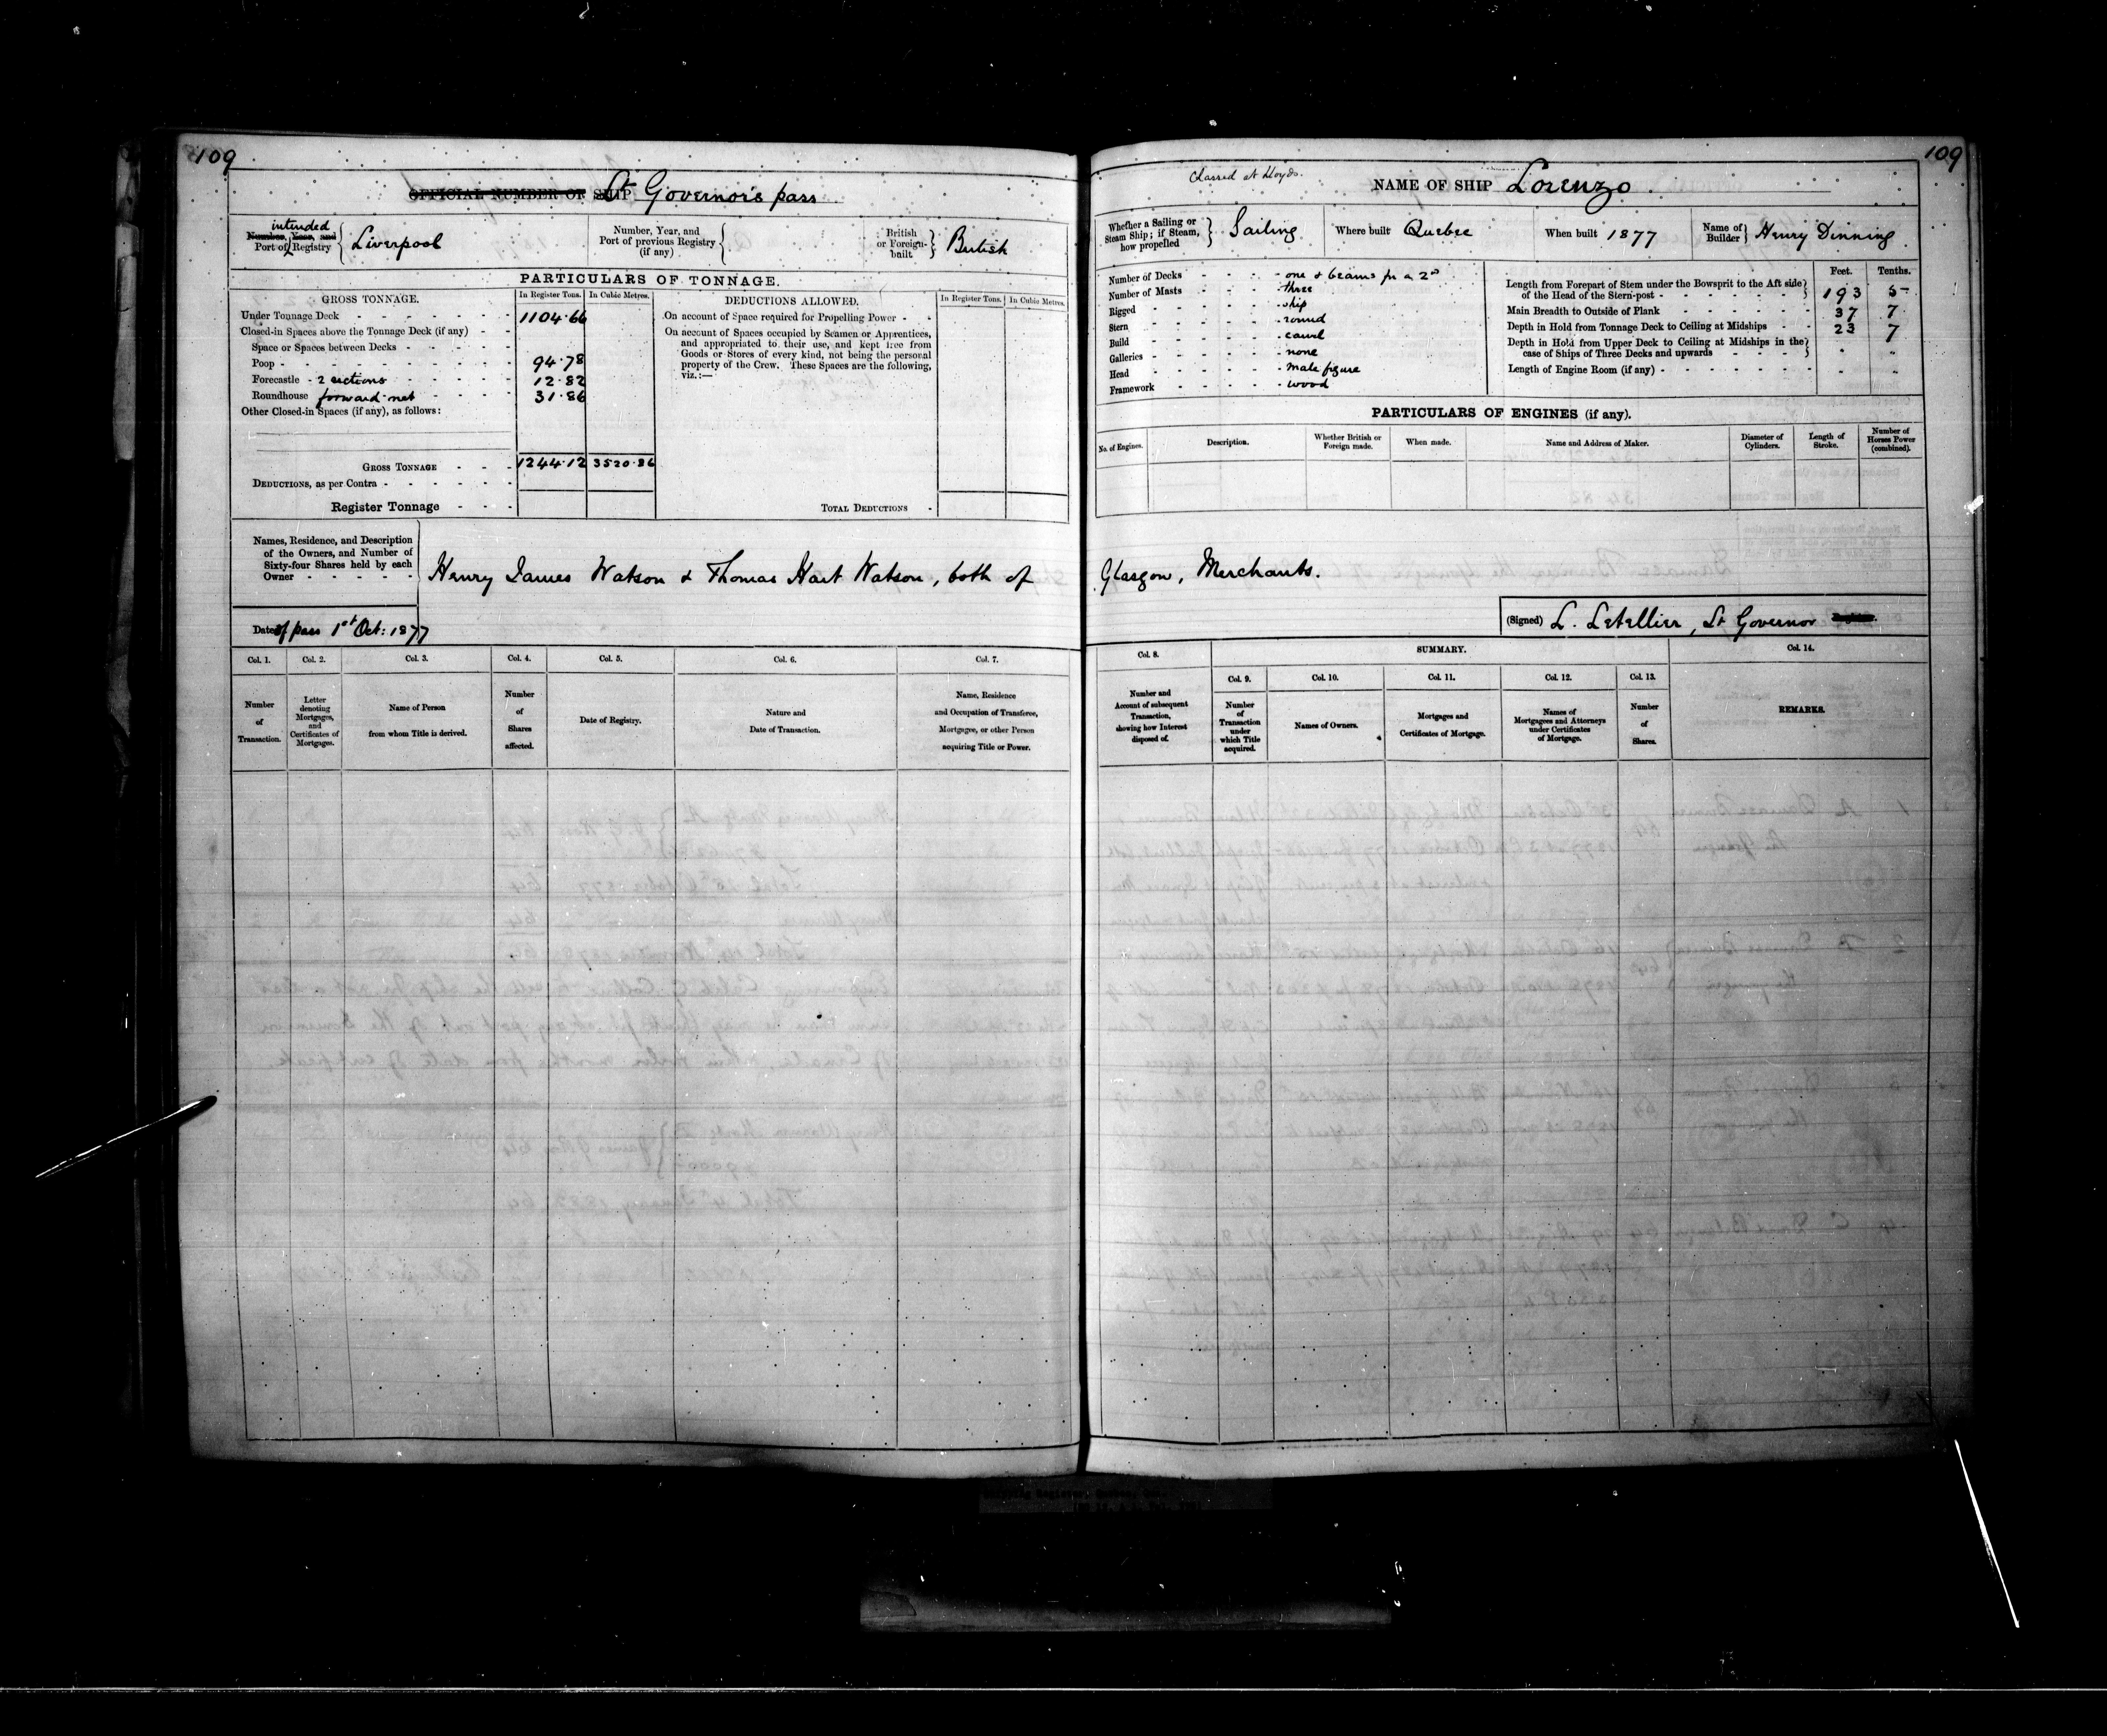 109
~~OFFICIAL NUMBER OF~~ SHIP Lt Governor's pass
intended
~~Number, Year, and~~
Port of Registry
Liverpool
Number, Year, and
Port of previous Registry
(if any)
British
or Foreign-
built
British
PARTICULARS OF TONNAGE.
GROSS TONNAGE.
In Register Tons.
In Cubic Metres.
Under Tonnage Deck - 1104.66
Closed-in Spaces above the Tonnage Deck (if any) - -
Space or Spaces between Decks -
Poop - 94.78
Forecastle - 2 sections 12.82
Roundhouse forward net 31.86
Other Closed-in Spaces (if any), as follows:
GROSS TONNAGE - - - 1244.12 3520.86
DEDUCTIONS, as per Contra -
Register Tonnage - - -
DEDUCTIONS ALLOWED.
In Register Tons. In Cubic Metres.
On account of Space required for Propelling Power -
On account of Spaces occupied by Seamen or Apprentices,
and appropriated to their use, and kept free from
Goods or Stores of every kind, not being the personal
property of the Crew. These Spaces are the following,
viz.:—
TOTAL DEDUCTIONS -
Names, Residence, and Description
of the Owners, and Number of
Sixty-four Shares held by each
Owner - - - - -
Henry James Watson & Thomas Hart Watson, both of
Date of pass 1st Oct: 1877
Col. 1. Col. 2. Col. 3. Col. 4. Col. 5. Col. 6. Col. 7.
Number
of
Transaction.
Letter
denoting
Mortgages,
and
Certificates of
Mortgages.
Name of Person
from whom Title is derived.
Number
of
Shares
affected.
Date of Registry.
Nature and
Date of Transaction.
Name, Residence
and Occupation of Transferee,
Mortgagee, or other Person
acquiring Title or Power.
109
Classed at Lloyds.
NAME OF SHIP Lorenzo
Whether a Sailing or
Steam Ship; if Steam,
how propelled
Sailing
Where built Quebec
When built 1877
Name of
Builder
Henry Dinning
Number of Decks - one & beams for a 2nd
Number of Masts - three
Rigged - ship
Stern - round
Build - carvel
Galleries - none
Head - male figure
Framework - wood
Feet. Tenths.
Length from Forepart of Stem under the Bowsprit to the Aft side
of the Head of the Stern-post - 193 5
Main Breadth to Outside of Plank - 37 7
Depth in Hold from Tonnage Deck to Ceiling at Midships - 23 7
Depth in Hold from Upper Deck to Ceiling at Midships in the
case of Ships of Three Decks and upwards -
Length of Engine Room (if any) -
PARTICULARS OF ENGINES (if any).
No. of Engines.
Description.
Whether British or
Foreign made.
When made.
Name and Address of Maker.
Diameter of
Cylinders.
Length of
Stroke.
Number of
Horses Power
(combined).
Glasgow, Merchants.
(Signed) L. Letellier, Lt Governor
Col. 8.
SUMMARY.
Col. 14.
Col. 9. Col. 10. Col. 11. Col. 12. Col. 13.
Number and
Account of subsequent
Transaction,
showing how Interest
disposed of.
Number
of
Transaction
under
which Title
acquired.
Names of Owners.
Mortgages and
Certificates of Mortgage.
Names of
Mortgagees and Attorneys
under Certificates
of Mortgage.
Number
of
Shares.
REMARKS.